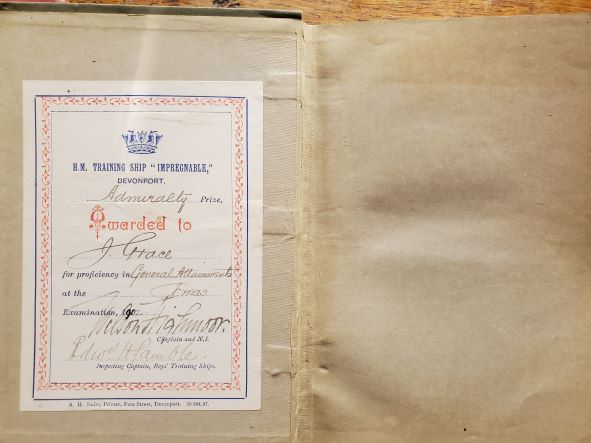 H.M. TRAINING SHIP "IMPREGNABLE,"
DEVONPORT.
Admiralty Prize,
Awarded to
J. Grace
for proficiency in General Attainments
at the Xmas
Examination, 190
Captain and N.I.
Inspecting Captain, Boys' Training Ships.
A. H. Swiss, Printer, Fore Street, Devonport.